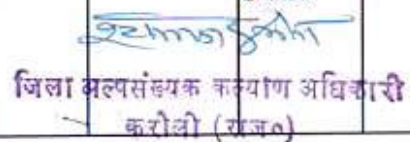 जिला अल्पसंख्यक कल्याण अधिकारी
करोली (राज०)